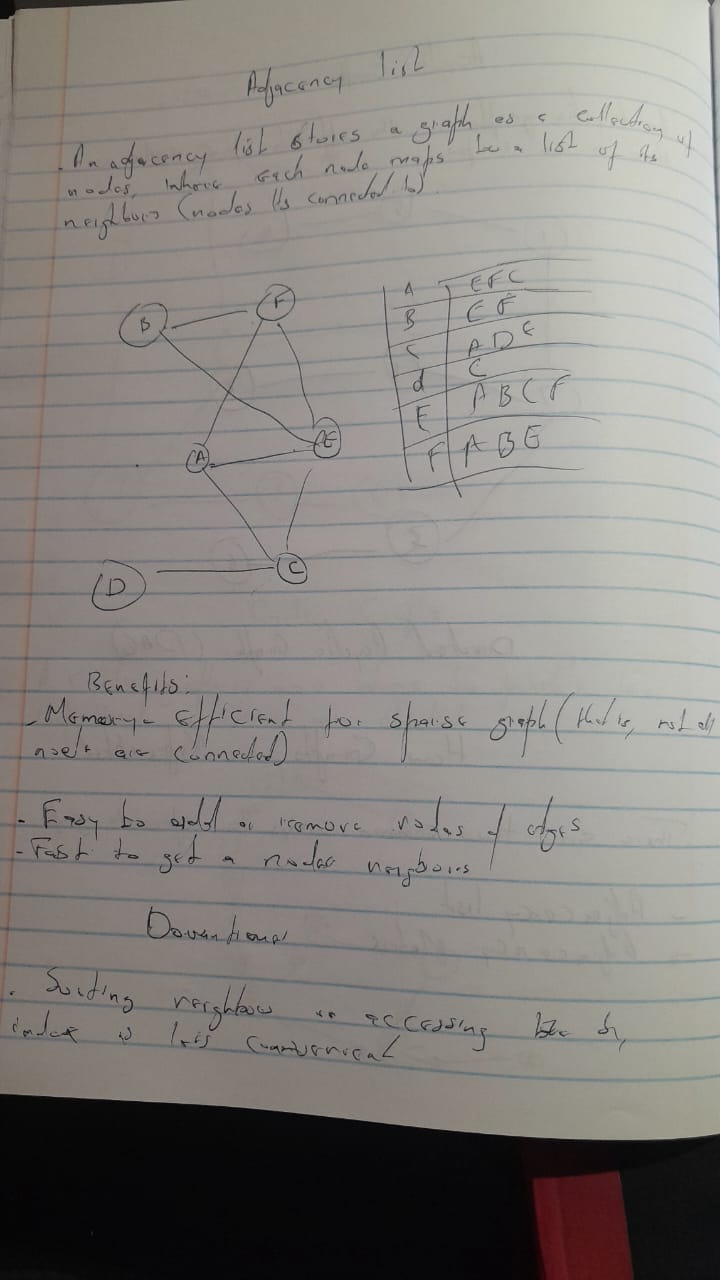 Adjacency list
. An adjacency list stores a graph as a collection of
nodes, where each node maps to a list of its
neighbors (nodes its connected to)
B
F
A
E
D
C
A EFC
B EF
C ADE
d C
E ABCF
F ABE
Benefits:
- Memory- Efficient for sparse graph (that is, not all
are connected)
- Easy to add or remove nodes of edges
- Fast to get a nodes neighbors
. neighbors or accessing by
index is less